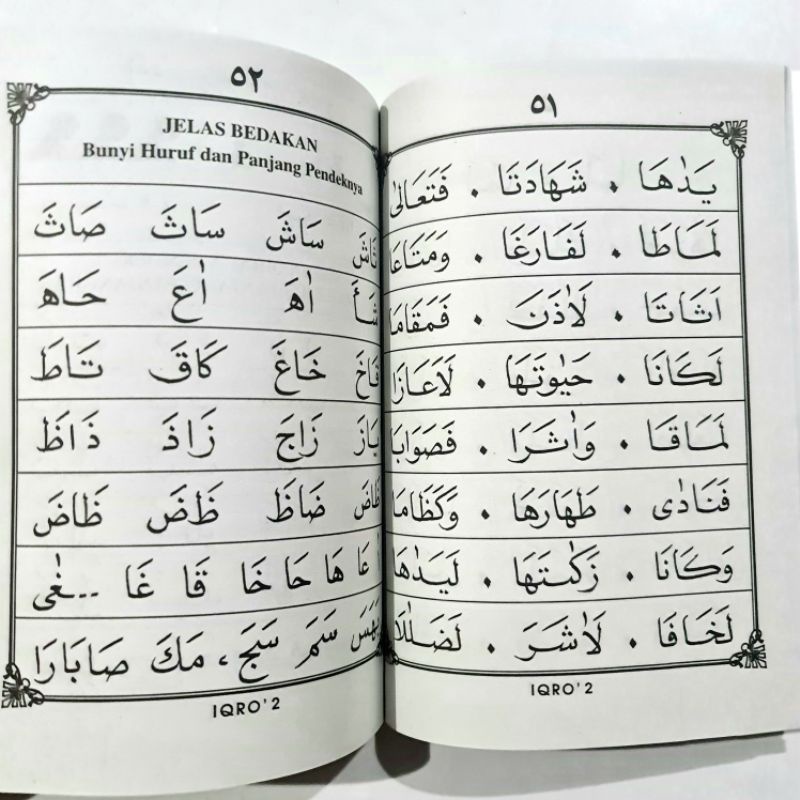 ٥١
يَدٰهَا . شَهَادَتَا . فَتَعَالٰى
لَمَاطَا . لَفَارَغَا . وَمَتَاعَا
اَثَاتَا . لَاٰذَنَ . فَمَقَامَا
لَكَانَا . حَيٰوتَهَا . لَاَعَازَا
لَمَاقَا . وَاٰثَرَا . فَصَوَابَا
فَنَادٰى . طَهَارَهَا . وَكَظَامَا
وَكَانَا . زَكٰتَهَا . لَيَدٰهَا
لَخَافَا . لَاشَرَ . لَضَلٰلَا
IQRO' 2
٥٢
JELAS BEDAKAN
Bunyi Huruf dan Panjang Pendeknya
سَاشَ سَاثَ صَاثَ
اٰهَ اٰعَ حَاهَ
خَاغَ كَاقَ تَاطَ
زَاجَ زَاذَ ذَاظَ
ضَاظَ ظَضَ ظَاضَ
عَا هَا حَا خَا قَا غَا ...غٰى
سَمَ سَجَ، مَكَ صَابَارَا
IQRO' 2